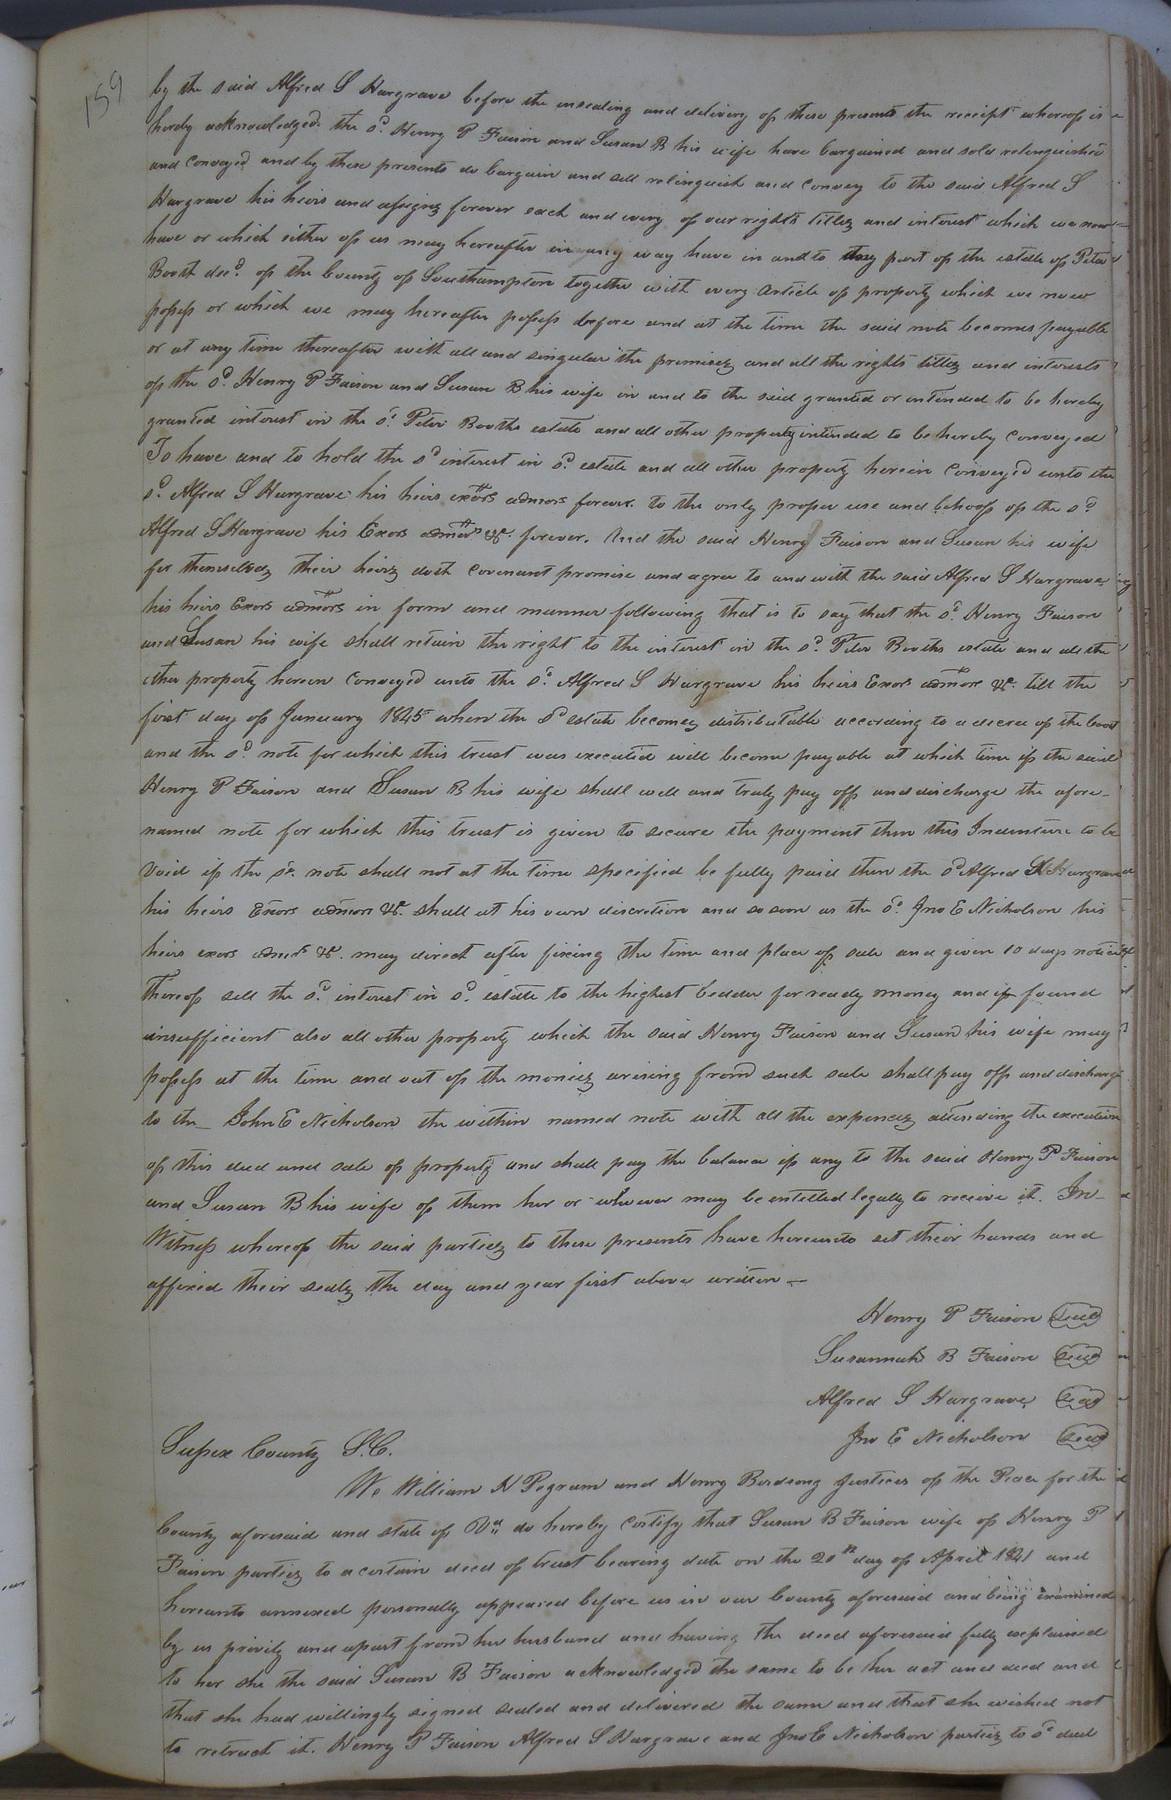 159
by the said Alfred S Hargrave before the ensealing and delivery of these presents the receipt whereof is
hereby acknowledged the sd. Henry P Faison and Susan B his wife have bargained and sold relinquished
and conveyed and by these presents do bargain and sell relinquish and convey to the said Alfred S
Hargrave his heirs and assigns forever each and every of our rights titles and interest which we now
have or which either of us may hereafter in any way have in and to any part of the estate of Peter
Booth decd. of the County of Southampton together with every article of property which we now
possess or which we may hereafter possess before and at the time the said note becomes payable
or at any time thereafter with all and singular the premises and all the rights titles and interests
of the sd. Henry P Faison and Susan B his wife in and to the said granted or intended to be hereby
granted interest in the sd. Peter Booths estate and all other property intended to be hereby conveyed
To have and to hold the sd interest in sd. estate and all other property herein conveyed unto the
sd. Alfred S Hargrave his heirs exors admors forever to the only proper use and behoof of the sd.
Alfred S Hargrave his Exors admors &c. forever. And the said Henry Faison and Susan his wife
for themselves their heirs doth covenant promise and agree to and with the said Alfred S Hargrave
his heirs Exors admors in form and manner following that is to say that the sd. Henry Faison
and Susan his wife shall retain the right to the interest in the sd. Peter Booths estate and all the
other property herein conveyed unto the sd. Alfred S Hargrave his heirs Exors admors &c. till the
first day of January 1845 when the sd estate becomes distributable according to a decree of the Court
and the sd. note for which this trust was executed will become payable at which time if the said
Henry P Faison and Susan B his wife shall well and truly pay off and discharge the afore-
named note for which this trust is given to secure the payment then this Indenture to be
void if the sd. note shall not at the time specified be fully paid then the sd Alfred S Hargrave
his heirs Exors admors &c. shall at his own discretion and so soon as the sd. Jno E Nicholson his
heirs exors admrs &c. may direct after fixing the time and place of sale and given 10 days notice
thereof sell the sd. interest in sd. estate to the highest bedder for ready money and if found
insufficient also all other property which the said Henry Faison and Susan his wife may
possess at the time and out of the monies arising from such sale shall pay off and discharge
to the John E Nicholson the within named note with all the expences attending the execution
of this deed and sale of property and shall pay the balance if any to the said Henry P Faison
and Susan B his wife of them her or whoever may be entitled legally to receive it. In
Witness whereof the said parties to these presents have hereunto set their hands and
affixed their seals the day and year first above written —
Henry P Faison Seal
Susannah B Faison Seal
Alfred S Hargrave Seal
Jno E Nicholson Seal
Sussex County S.C.
We William H Pegram and Henry Birdsong Justices of the Peace for the
County aforesaid and state of Va. do hereby certify that Susan B Faison wife of Henry P
Faison parties to a certain deed of trust bearing date on the 20th day of April 1841 and
hereunto annexed personally appeared before us in our County aforesaid and being examined
by us privily and apart from her husband and having the deed aforesaid fully explained
to her she the said Susan B Faison acknowledged the same to be her act and deed and
that she had willingly signed sealed and delivered the same and that she wished not
to retract it. Henry P Faison Alfred S Hargrave and Jno E Nicholson parties to sd deed